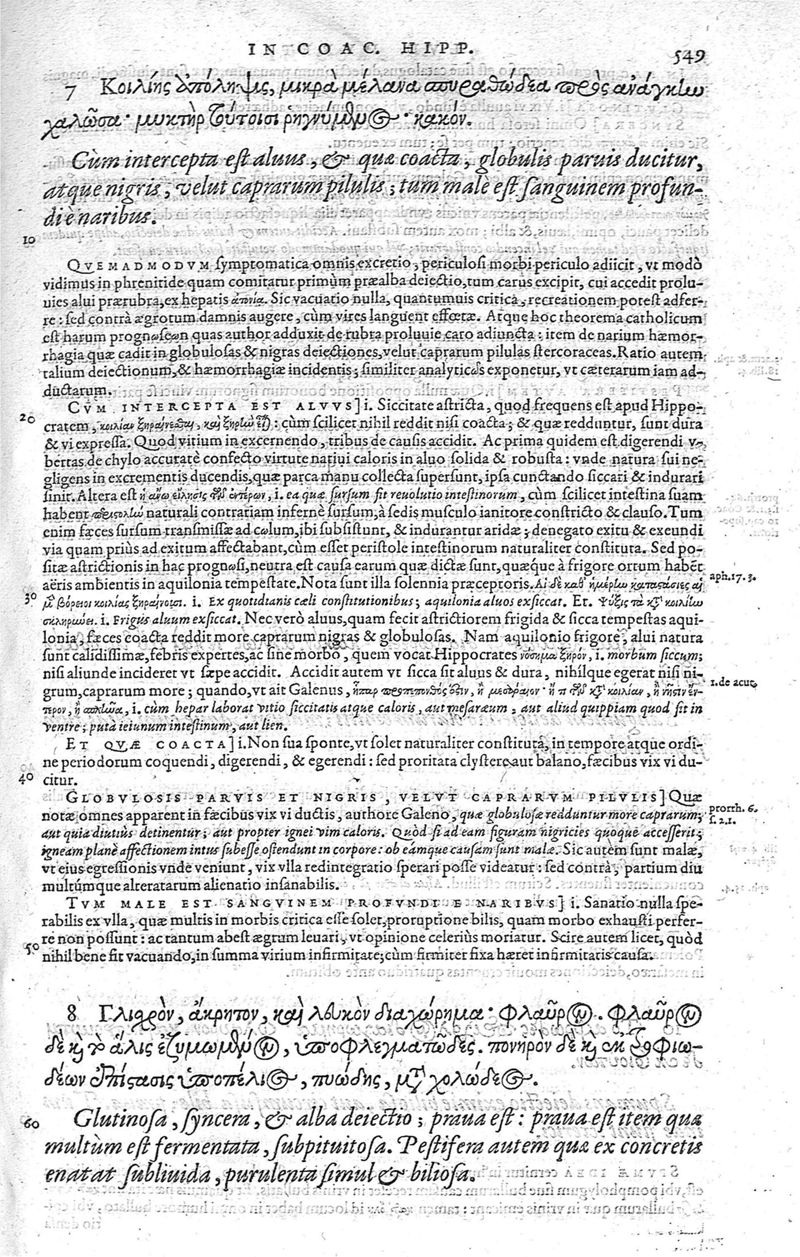 IN COAC. HIPP.
549
7 Κοιλίης ἀπόληψις, μικρὰ μέλανα σπυραθώδεα πρὸς ἀνάγκην
χαλῶσα· μυκτὴρ τούτοισι ῥηγνύμενος· κακόν.
Cùm intercepta est aluus, & quæ coacta, globulis paruis ducitur,
atque nigris, velut caprarum pilulis; tum male est sanguinem profun-
di è naribus.
10
QVEMADMODVM symptomatica omnis excretio, periculosi morbi periculo adiicit, vt modò
vidimus in phrenitide quam comitatur primùm præalba deiectio, tum carus excipit, cui accedit prolu-
uies alui prærubra, ex hepatis ἀτονία. Sic vacuatio nulla, quantumuis critica, recreationem potest adfer-
re: sed contrà ægrotum damnis augere, cùm vires languent effœtæ. Atque hoc theorema catholicum
est harum prognωσεων quas author adduxit de rubra proluuie caro adiuncta: item de narium hæmor-
rhagia quæ cadit in globulosas & nigras deiectiones, velut caprarum pilulas stercoraceas. Ratio autem
talium deiectionum, & hæmorrhagiæ incidentis; similiter analyticῶς exponetur, vt cæterarum iam ad-
ductarum.
CVM INTERCEPTA EST ALVVS] i. Siccitate astricta, quod frequens est apud Hippo-
20
cratem, : cùm scilicet nihil reddit nisi coacta; & quæ redduntur, sunt dura
& vi expressa. Quod vitium in excernendo, tribus de causis accidit. Ac prima quidem est digerendi v-
bertas de chylo accuratè confecto virtute natiui caloris in aluo solida & robusta: vnde natura sui ne-
gligens in excrementis ducendis, quæ parca manu collecta supersunt, ipsa cunctando siccari & indurari
sinit. Altera est ἡ ἄνω εἴλησις τῶν ἐντέρων, i. ea quæ sursum fit reuolutio intestinorum, cùm scilicet intestina suam
habent naturali contrariam infernè sursum, à sedis musculo ianitore constricto & clauso. Tum
enim fæces sursum transmissæ ad colum, ibi subsistunt, & indurantur aridæ; denegato exitu & exeundi
via quam prius ad exitum affectabant, cùm esset peristole intestinorum naturaliter constituta. Sed po-
sitæ astrictionis in hac prognωσι, neutra est causa earum quæ dictæ sunt, quæque à frigore ortum habet
aëris ambientis in aquilonia tempestate. Nota sunt illa solennia præceptoris. Αἱ δὲ καθ' ἡμέρην καταστάσιες αἱ
aph. 17. 3.
30
μὲν βόρειοι κοιλίας ξηραίνουσι. i. Ex quotidianis cæli constitutionibus; aquilonia aluos exsiccat. Et. Ψύξις τὰ κατὰ κοιλίην
σκληρύνει. i. Frigus aluum exsiccat. Nec verò aluus, quam fecit astrictiorem frigida & sicca tempestas aqui-
lonia, fæces coacta reddit more caprarum nigras & globulosas. Nam aquilonio frigore, alui natura
sunt calidissimæ, febris expertes, ac sine morbo, quem vocat Hippocrates νόσημα ξηρόν, i. morbum siccum;
nisi aliunde incideret vt sæpe accidit. Accidit autem vt sicca sit aluus & dura, nihilque egerat nisi ni-
grum, caprarum more; quando, vt ait Galenus, ἧπαρ
1. de acut.
i. cùm hepar laborat vitio siccitatis atque caloris, aut mesaræum, aut aliud quippiam quod sit in
ventre; putà ieiunum intestinum, aut lien.
ET QVÆ COACTA] i. Non sua sponte, vt solet naturaliter constituta, in tempore atque ordi-
ne periodorum coquendi, digerendi, & egerendi: sed proritata clystere aut balano, fæcibus vix vi du-
40
citur.
GLOBVLOSIS PARVIS ET NIGRIS, VELVT CAPRARVM PILVLIS] Quæ
notæ omnes apparent in fæcibus vix vi ductis, authore Galeno, quæ globulosæ redduntur more caprarum;
prorrh. 6.
s. 2. 1.
aut quia diutiùs detinentur; aut propter ignei vim caloris. Quòd si ad eam figuram nigricies quoque accesserit;
igneam planè affectionem intus subesse ostendunt in corpore: ob eámque causam sunt malæ. Sic autem sunt malæ,
vt eius egressionis vnde veniunt, vix vlla redintegratio sperari posse videatur: sed contrà, partium diu
multúmque alteratarum alienatio insanabilis.
TVM MALE EST SANGVINEM PROFVNDI E NARIBVS] i. Sanatio nulla spe-
rabilis ex vlla, quæ multis in morbis critica esse solet, proruptione bilis, quam morbo exhausti perfer-
re non possunt: ac tantum abest ægrum leuari, vt opinione celeriùs moriatur. Scire autem licet, quòd
50
nihil bene fit vacuando, in summa virium infirmitate; cùm firmiter fixa hæret infirmitatis causa.
8 Γλίσχρον, ἄκρητον, καὶ λευκὸν διαχώρημα· φλαῦρον. φλαῦρον
δὲ καὶ τὸ ἅλις ἐζυμωμένον, ὑποφλεγματῶδες. πονηρὸν δὲ καὶ ἐκ τροφιω-
δέων ἐπίστασις ὑποπέλιος, πυώδης, μετὰ χολώδεος.
60
Glutinosa, syncera, & alba deiectio; praua est: praua est item quæ
multùm est fermentata, subpituitosa. Pestifera autem quæ ex concretis
enatat subliuida, purulenta simul & biliosa.